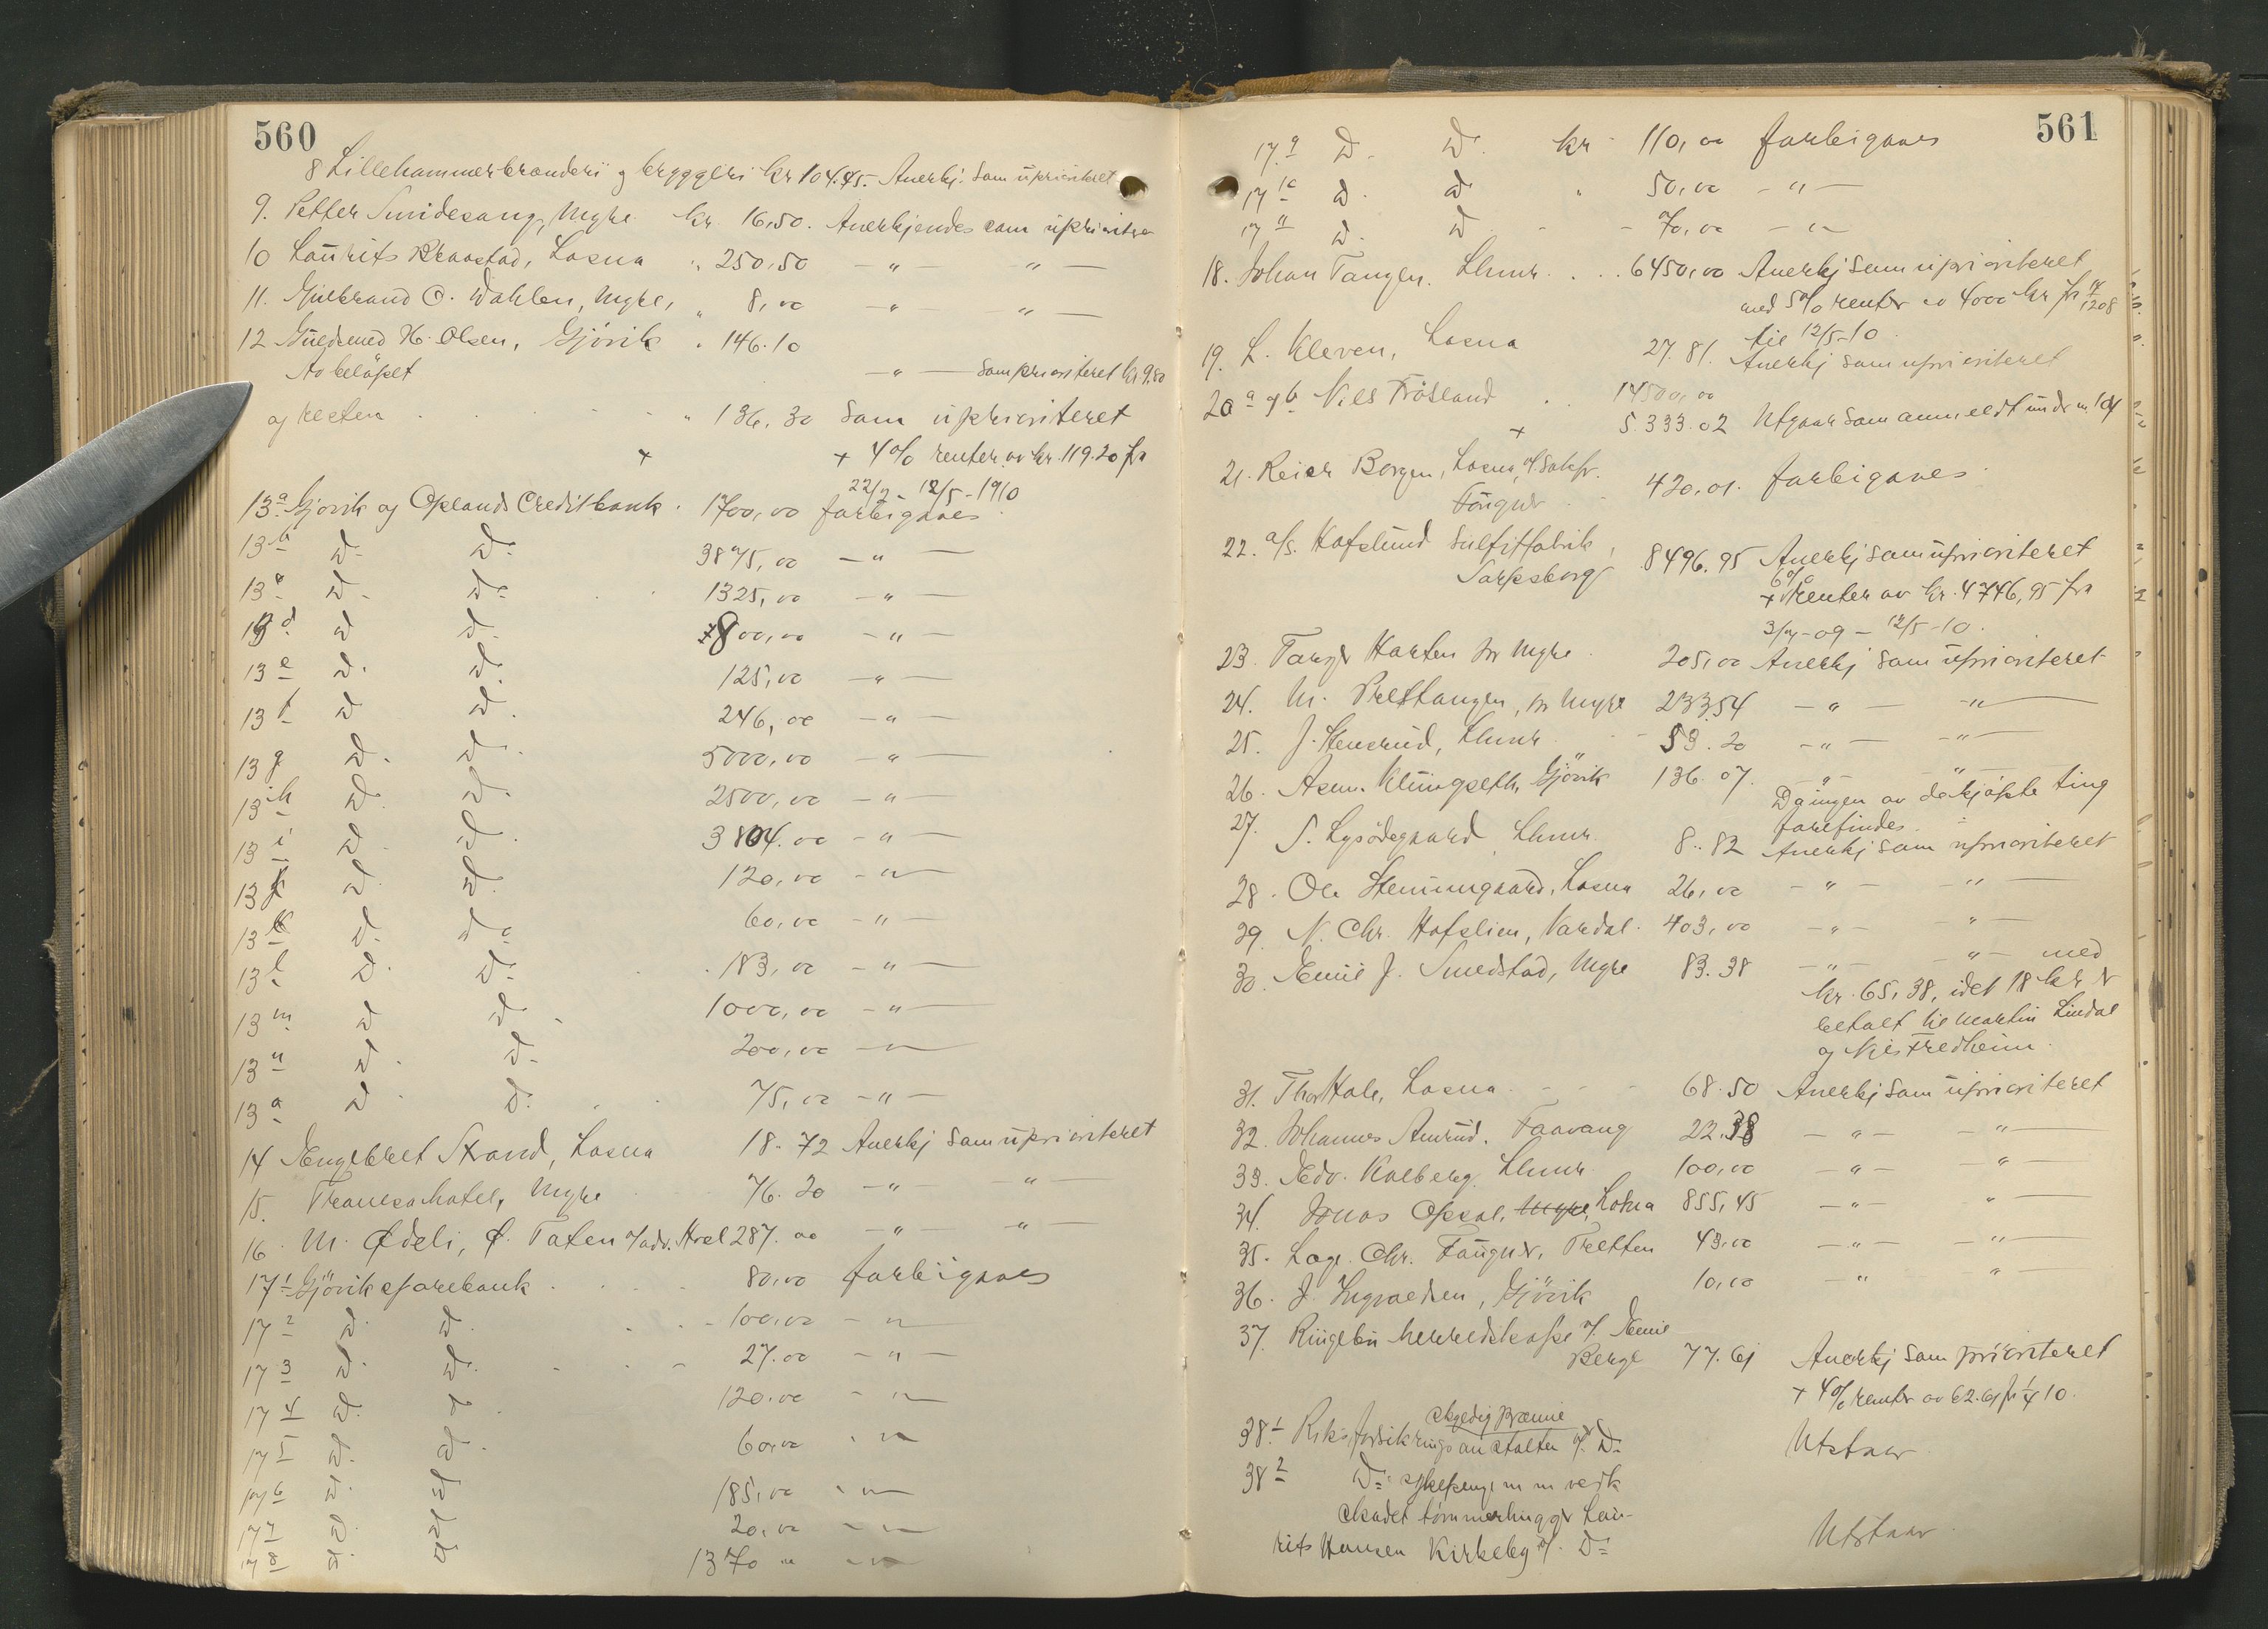 560
8 Lillehammer brænderi og bryggeri kr 104.45. Anerkj. som uprioriteret
9. Petter Smidesang, Myre kr. 16,50. Anerkjendes som uprioriter
10 Laurits Kraastad, Losna " 250,50 — " — " —
11. Gulbrand O. Dahlen, Myre, " 8,00 — " — " —
12 Guldsmed H. Olsen, Gjövik " 146.10
Av belöpet — " — som prioriteret kr 9.80
og resten " 136,30 som uprioriteret
+ + 4% renter av kr. 119.20 fra
22/2 - 12/5 - 1910
13 a Gjövik og Oplands Creditbank . 1700,00 forbigaaes
13 b Do Do 3875,00 — " —
13 c Do Do 1325,00 — " —
13 d Do Do 800,00 — " —
13 e Do Do 125,00 — " —
13 f Do Do 246,00 — " —
13 g Do Do 5000,00 — " —
13 h Do Do 2500,00 — " —
13 i Do Do 3804.00 — " —
13 j Do Do 120,00 — " —
13 k Do Do 60,00 — " —
13 l Do Do 183,00 — " —
13 m Do Do 1000,00 — " —
13 n Do Do 200,00 — " —
13 o Do Do 75,00 — " —
14 Engebret Strand, Losna 18.72 Anerkj som uprioriteret
15. Fransahotel, Myre 76.20 — " — " —
16. M. Ødeli, Ø. Toten v/adv. Hoel 287.00 — " — " —
17 1 Gjövik sparebank 80,00 forbigaaes
17 2 Do Do 100,00 — " —
17 3 Do Do 27.00 — " —
17 4 Do Do 120.00 — " —
17 5 Do Do 60,00 — " —
17 6 Do Do 185,00 — " —
17 7 Do Do 20,00 — " —
17 8 Do Do 1370 " — " —
561
17 9 Do Do kr 110,00 forbigaaes
17 10 Do Do " 50,00 — " —
17 11 Do Do - 70,00 — " —
18. Johan Tangen. Lhmr. 6450,00 Anerkj som uprioriteret
med 5% renter av 4000 kr fra
til 12/5-10
19. L. Kleven, Losna 27.81. Anerkj som uprioriteret
20 a og b Nils Fröisland 14500,00
+ 5333.02 Utgaar som anmeldt under nr 104
21. Reier Borgen, Losna, v/ Sakfr.
Faugner 420,01. forbigaaes
22. a/s. Hafslund Sulfitfabrik,
Sarpsborg 8496.95 Anerkj som uprioriteret
+ 6% renter av kr. 4746,95 fra
3/7-09 - 12/5-10.
23. Torger Harten pr Myre 205,00 Anerkj som uprioriteret
24. M. Prestangen, pr Myre 233.54 — " — — " —
25. J. Stensrud, Lhmr 53.20 — " — — " —
26. Asm. Klungseth, Gjövik 136.07. — " — — " —
Do ingen av de kjöpte ting
forefindes.
27. S. Lysödegaard Lhmr. 8.82 Anerkj som uprioriteret
28. Ole Stenumgaard, Losna 26,00 — " — — " —
29. N. Chr. Hofslien, Vardal. 403,00 — " — " —
30. Emil J. Smedstad, Myre 83.38 — " — " — med
kr. 65,38, idet 18 kr er
betalt til Martin Lindal
og Nils Fredheim.
31. Thor Hole, Losna 68.50 Anerkj som uprioriteret
32. Johannes Amrud. Faavang 22.38 — " — — " —
33. Edv. Kalberg, Lhmr 100,00 — " — " —
34. Jonas Opsal, Myre, Losna 855,45 — " — " —
35. Lage Chr. Faugner, Tretten 43,00 — " — — " —
36. J. Ingvaldsen, Gjövik 10,00 — " — " —
37. Ringebu herredskasse v/. Emil
Berge 77.61 Anerkj som prioriteret
+ 4% renter av 62.61 fra 1/4 10.
skyldig præmie
38 1. Riksforsikringsanstalten v/. Do Utstaar
38 2 Do sykepenge m m vedk
skadet tömmerhugger Lau-
rits Hansen Kirkeby v/. Do Utstaar